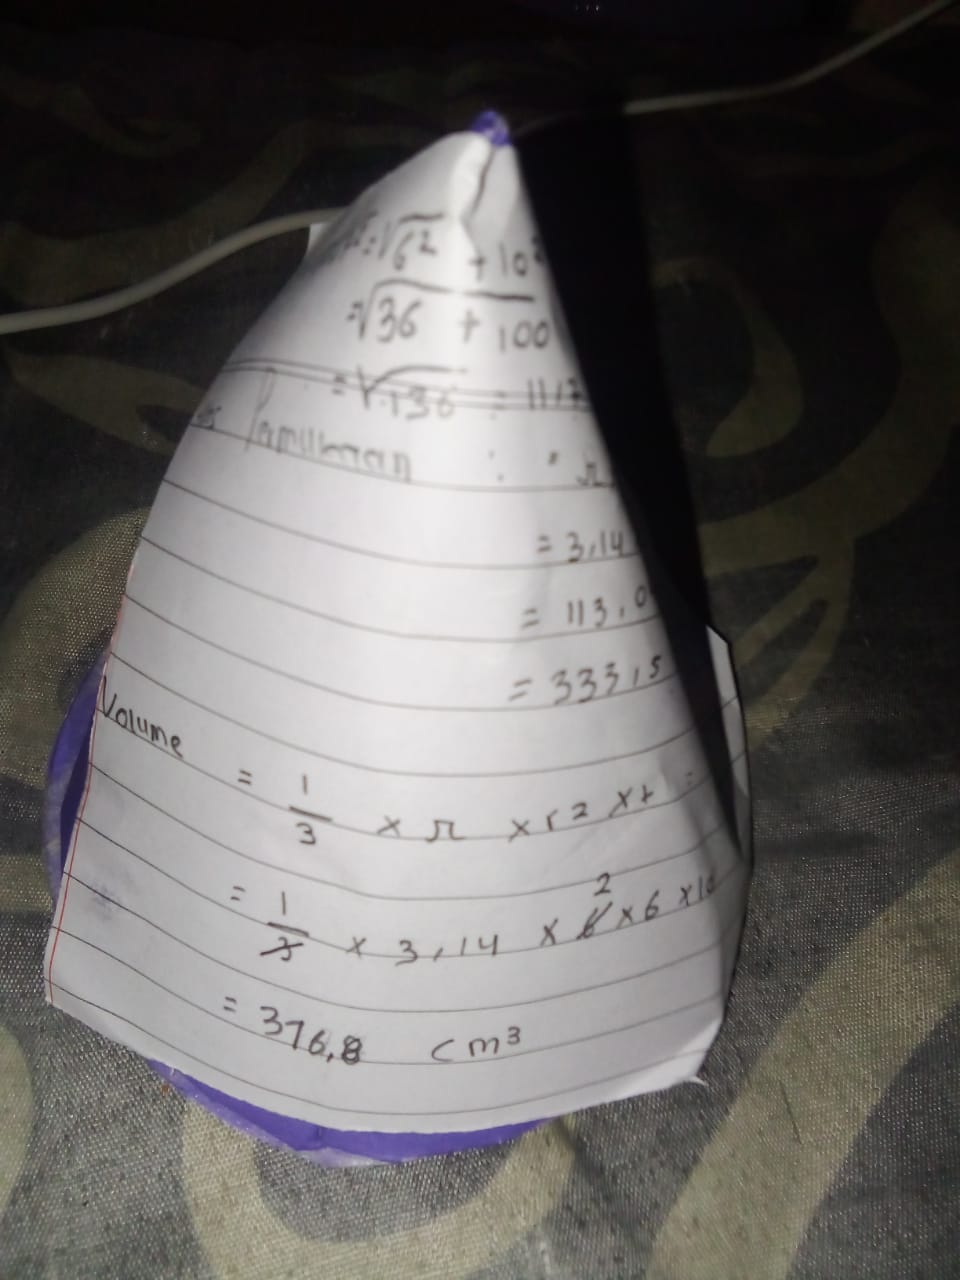 = √6² + 10²
= √36 + 100
= √136 = 11,7
: π
= 3,14
= 113,0
= 333,5
Volume
= 1/3 × π × r² × t =
= 1/3 × 3,14 × 6 2 × 6 × 10
= 376,8 cm³